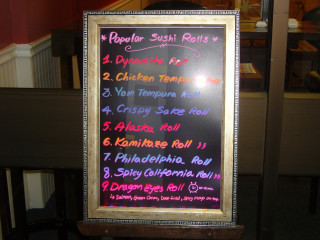 * Popular Sushi Rolls *
1. Dynamite Roll
2. Chicken Tempura
3. Yam Tempura Roll
4. Crispy Sake Roll
5. Alaska Roll
6. Kamikaze Roll "
7. Philadelphia Roll
8. Spicy California Roll "
9. Dragon Eyes Roll